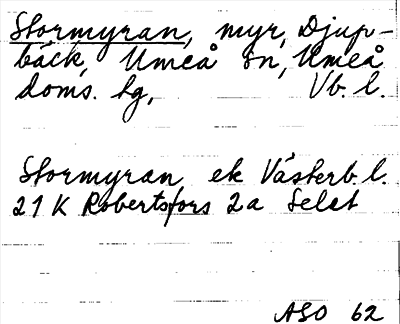 Stormyran, myr, Djup-
bäck, Umeå sn, Umeå
doms. hg, Vb. l.
Stormyran, ek Västerb. l.
21 K Robertsfors 2a Selet
ASO 62